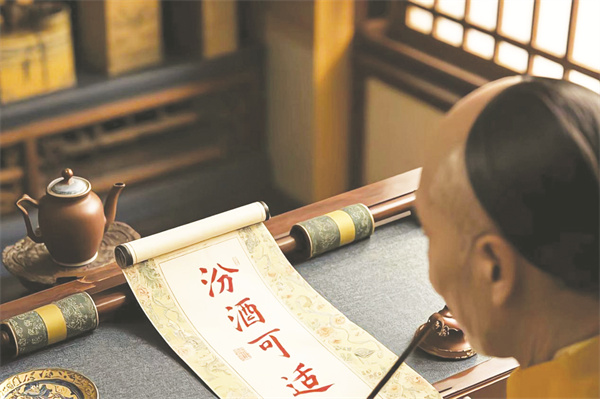 汾酒可适